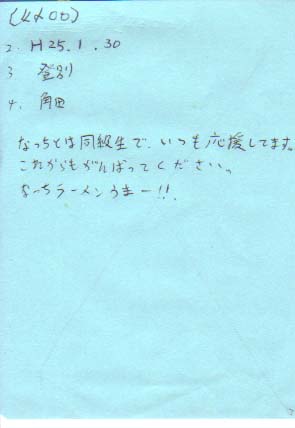 2. H25.1.30
3 登別
4. 角田
なっちとは同級生で、いつも応援してます。
これからもがんばってください。
なっちラーメンうまー!!.